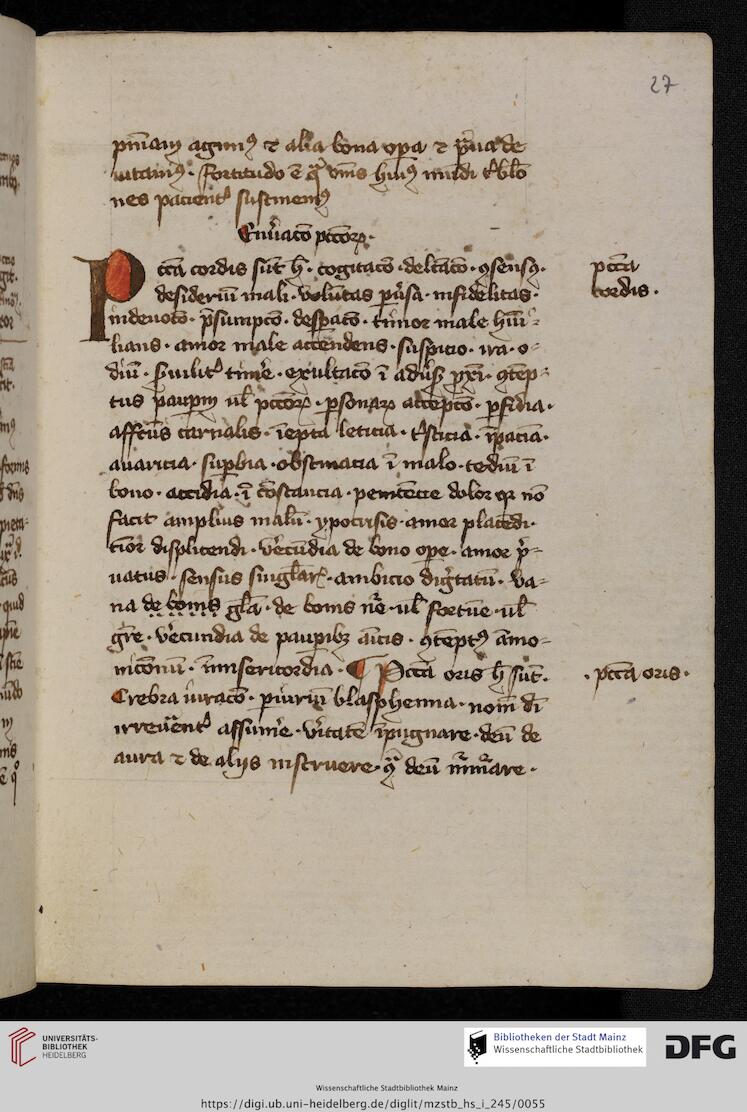 27
pn̄iam agimꝰ ⁊ alia bona opa ⁊ p̄uia de
uitamꝰ · fortitudo ē qͣ om̄s huiꝰ mūdi t̓bl̓o
nes pacient̓ sustinemꝰ
Enūaco pccoꝝ ·
Pccā cordis sūt h̄ · cogitacō · delcacō · ꝯsensꝰ ·
desideriū mali · voluntas puͥsa · infidelitas ·
indeuocō · p̄sumpcō · despacō · timor male hūi-
lians · amor male accendens · suspicio · ira · o-
diū · s̓uilit̓ tim̓e · exultacō ī adūs̓ pxi · ꝯtēp-
tus paupm ul̓ pccoꝝ · psonaꝝ accepcō · pfidia ·
affctūs carnalis · īepta leticia · t̓sticia · īpaciā ·
auaricia · supbia · obstinacia ī malo · tediū ī
bono · accidia · ī cōstancia · penitēcie dolor qꝛ nō
facit amplius malū · ypocrisis · amor placēdi ·
timor displicendi · v̓ecūdia de bono ope · amor p̓-
uatus · sensus singl̓aꝝ · ambicio dignitatū · va-
na de bonis gl̓ā · de bonis nē · ul̓ fortūe · ul̓
gr̄e · v̓ecundia de paupibꝫ aīcis · ꝯtēptꝰ āmo-
nicōnū · īmisericordia · ¶ Pccā oris h̄ sūt ·
Crebra iuracō · piuriū blasphemia · nom̄ dī
irreuēent̓ assum̓e · v̓itatē īpugnare · deū de
aura ⁊ de alijs instruere · qͣ deū mͬmͬare ·
pccā
cordis ·
· pccā oris ·
UNIVERSITÄTS-
BIBLIOTHEK
HEIDELBERG
Bibliotheken der Stadt Mainz
Wissenschaftliche Stadtbibliothek
DFG
Wissenschaftliche Stadtbibliothek Mainz
https://digi.ub.uni-heidelberg.de/diglit/mzstb_hs_i_245/0055